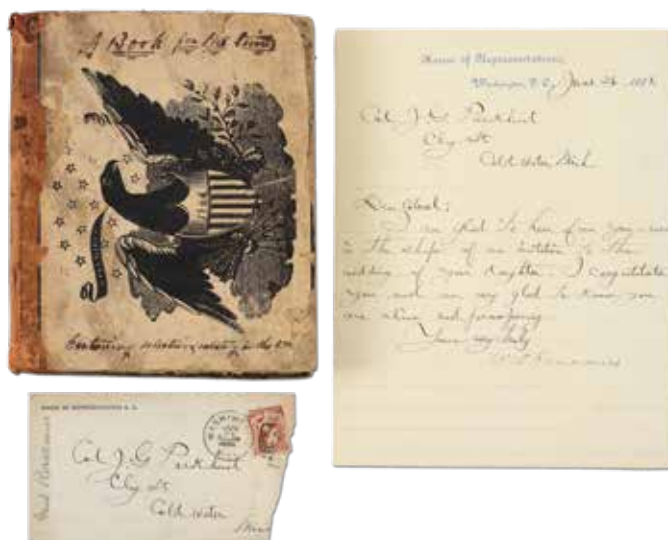 A Book for the times
Containing selections relating to the
House of Representatives
Washington, D.C., 
Col J G Parkhurst
Clay St
Cold Water Mich
Dear Colonel:
I am glad to hear from you - even
in the shape of an invitation to the
wedding of your daughter. I congratulate
you and am very glad to know you
are alive and prospering
Yours very truly
HOUSE OF REPRESENTATIVES U. S.
WASHINGTON
Col J G Parkhurst
Clay St
Cold Water
Mich